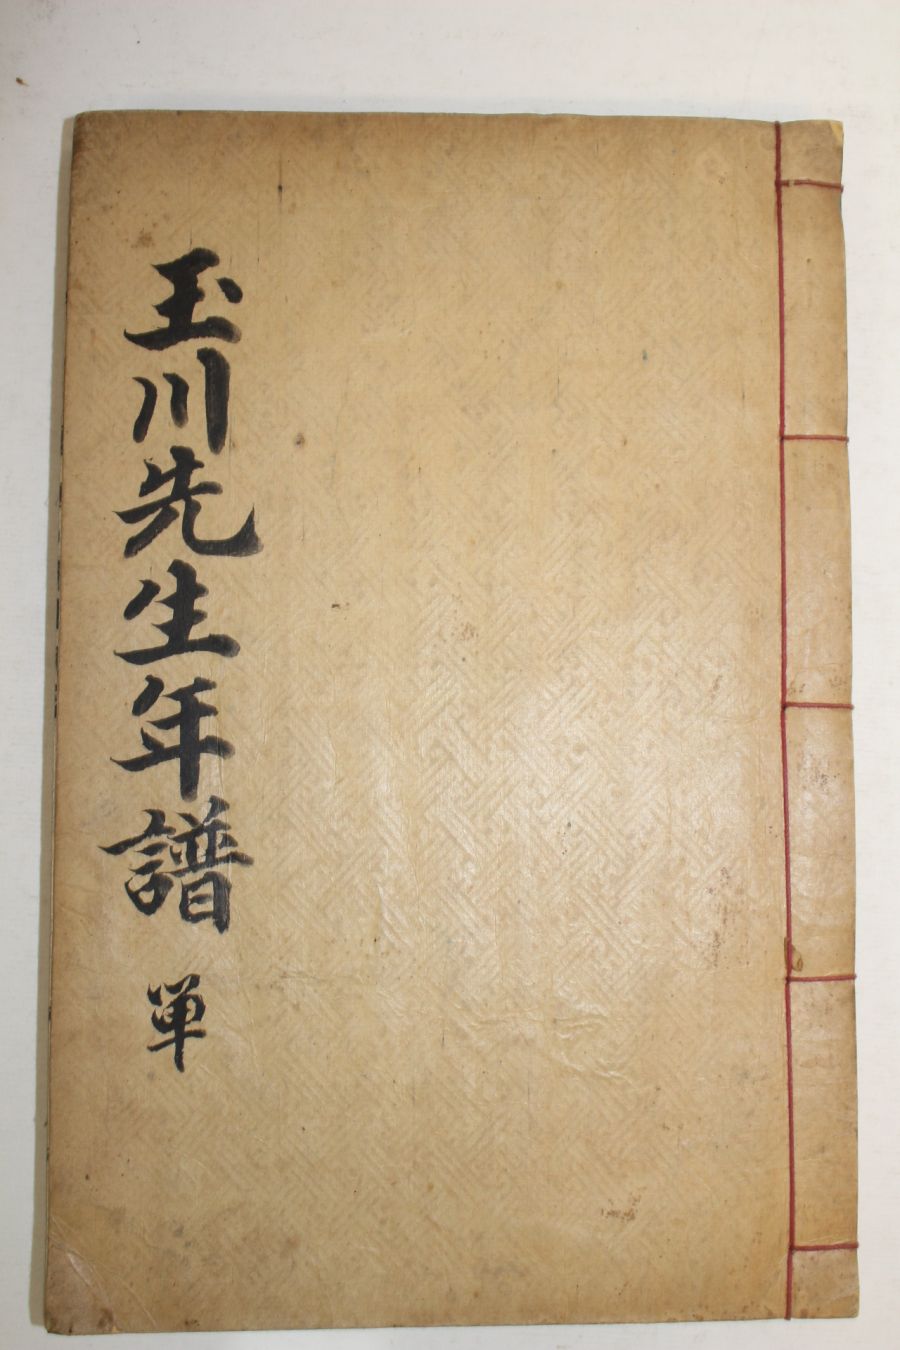 玉川先生年譜 单